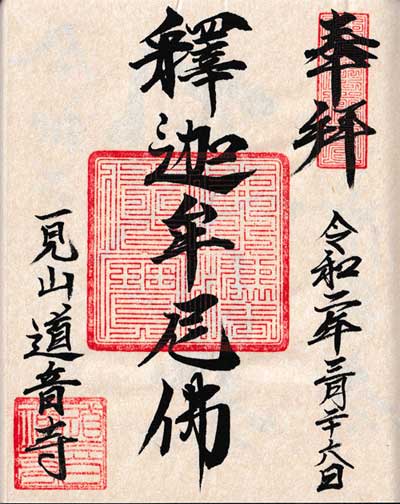 奉拜
令和二年三月二十六日
釋迦牟尼佛
一見山道音寺